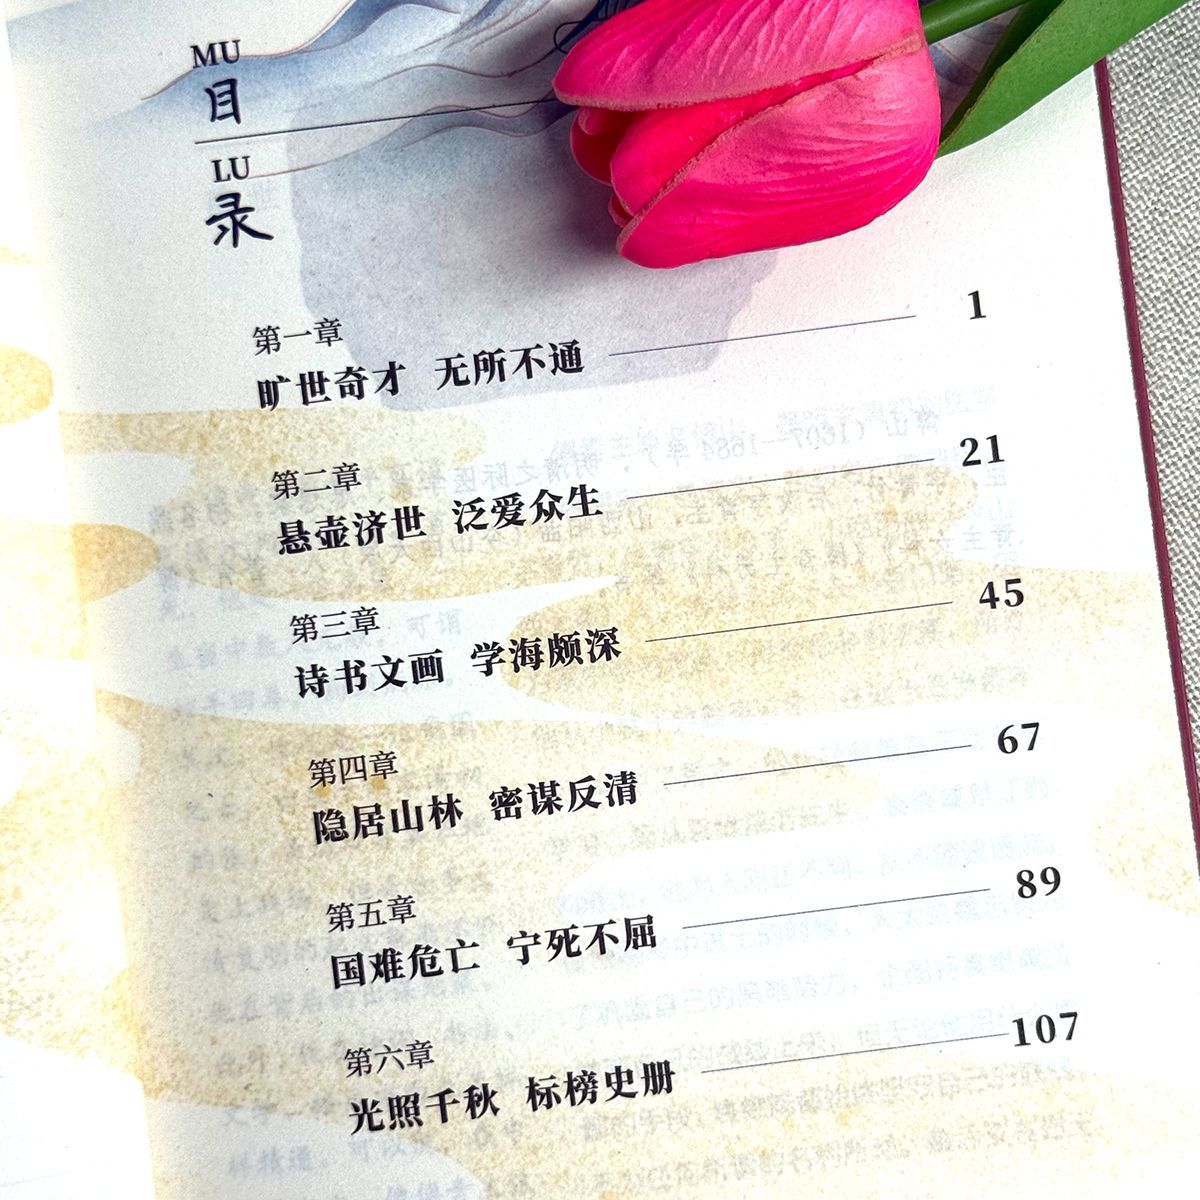 MU
目
LU
录
第一章
旷世奇才 无所不通 1
第二章
悬壶济世 泛爱众生 21
第三章
诗书文画 学海颇深 45
第四章
隐居山林 密谋反清 67
第五章
国难危亡 宁死不屈 89
第六章
光照千秋 标榜史册 107